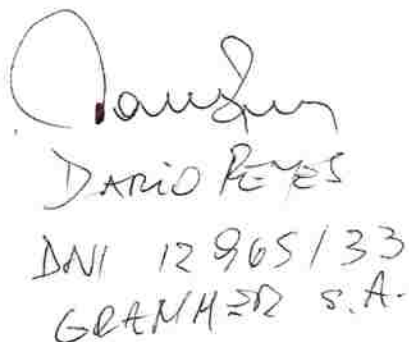 DARIO REYES
DNI 12965133
GRANMER S.A.